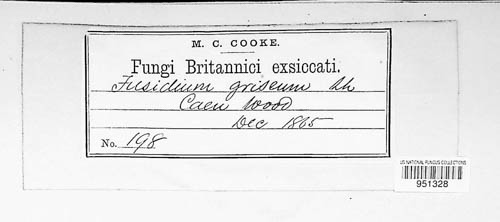 M. C. COOKE.
Fungi Britannici exsiccati.
Fusidium griseum Lk
Caen Wood
Dec 1865
No. 198
US NATIONAL FUNGUS COLLECTIONS
951328